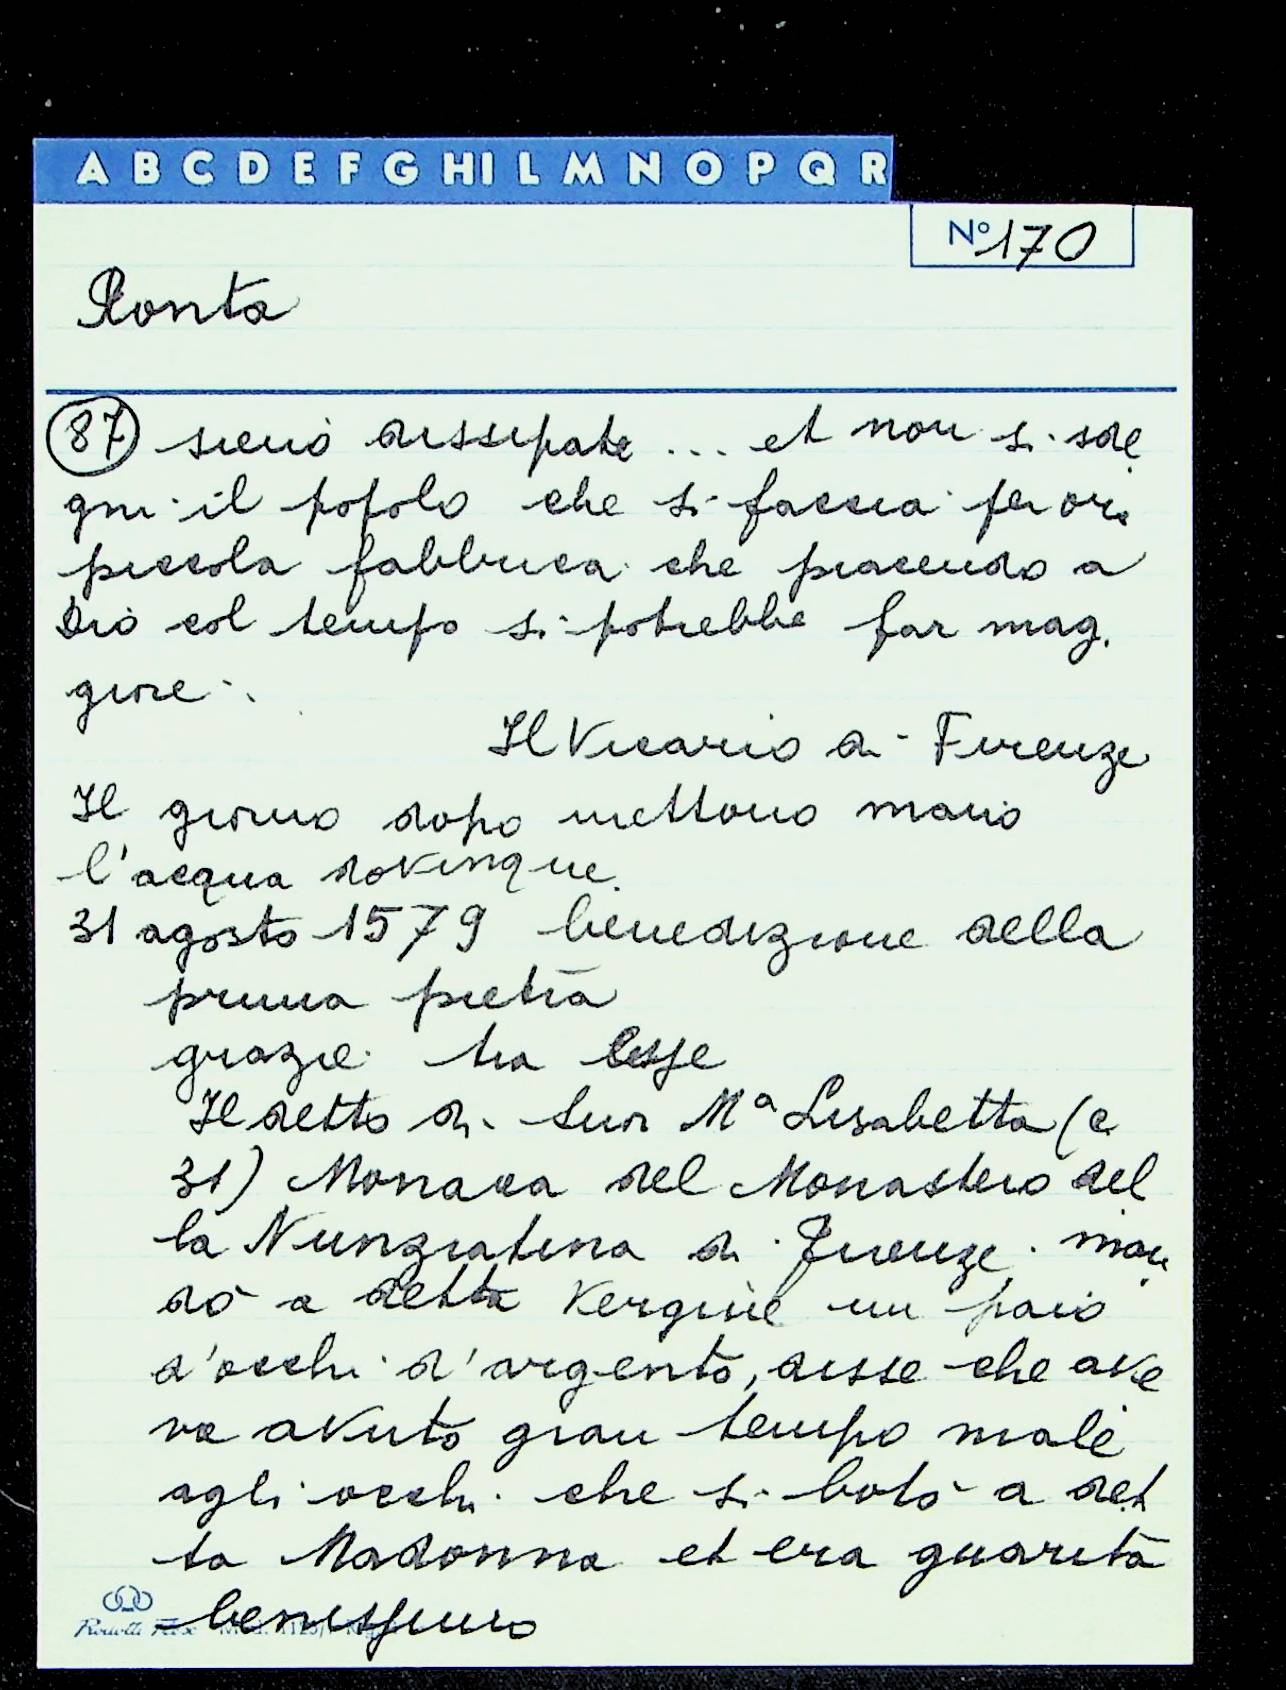 A B C D E F G H I L M N O P Q R
N° 170
Ronta
87 sieno dissipate ... et non si sde
gni il popolo che si faccia per ora
piccola fabbrica che piacendo a
Dio col tempo si potrebbe far mag.
giore.
Il Vicario di Firenze
Il giorno dopo mettono mano
l'acqua dovinque.
31 agosto 1579 benedizione della
prima pietra
grazie tra esse
Il detto di Suor Mª Lisabetta (c
31) Monaca del Monastero del
la Nunziatina di Firenze. man
dò a detta Vergine un paio
d'occhi d'argento, disse che ave
va avuto gran tempo male
agli occhi che si botò a det
ta Madonna et era guarita
benissimo